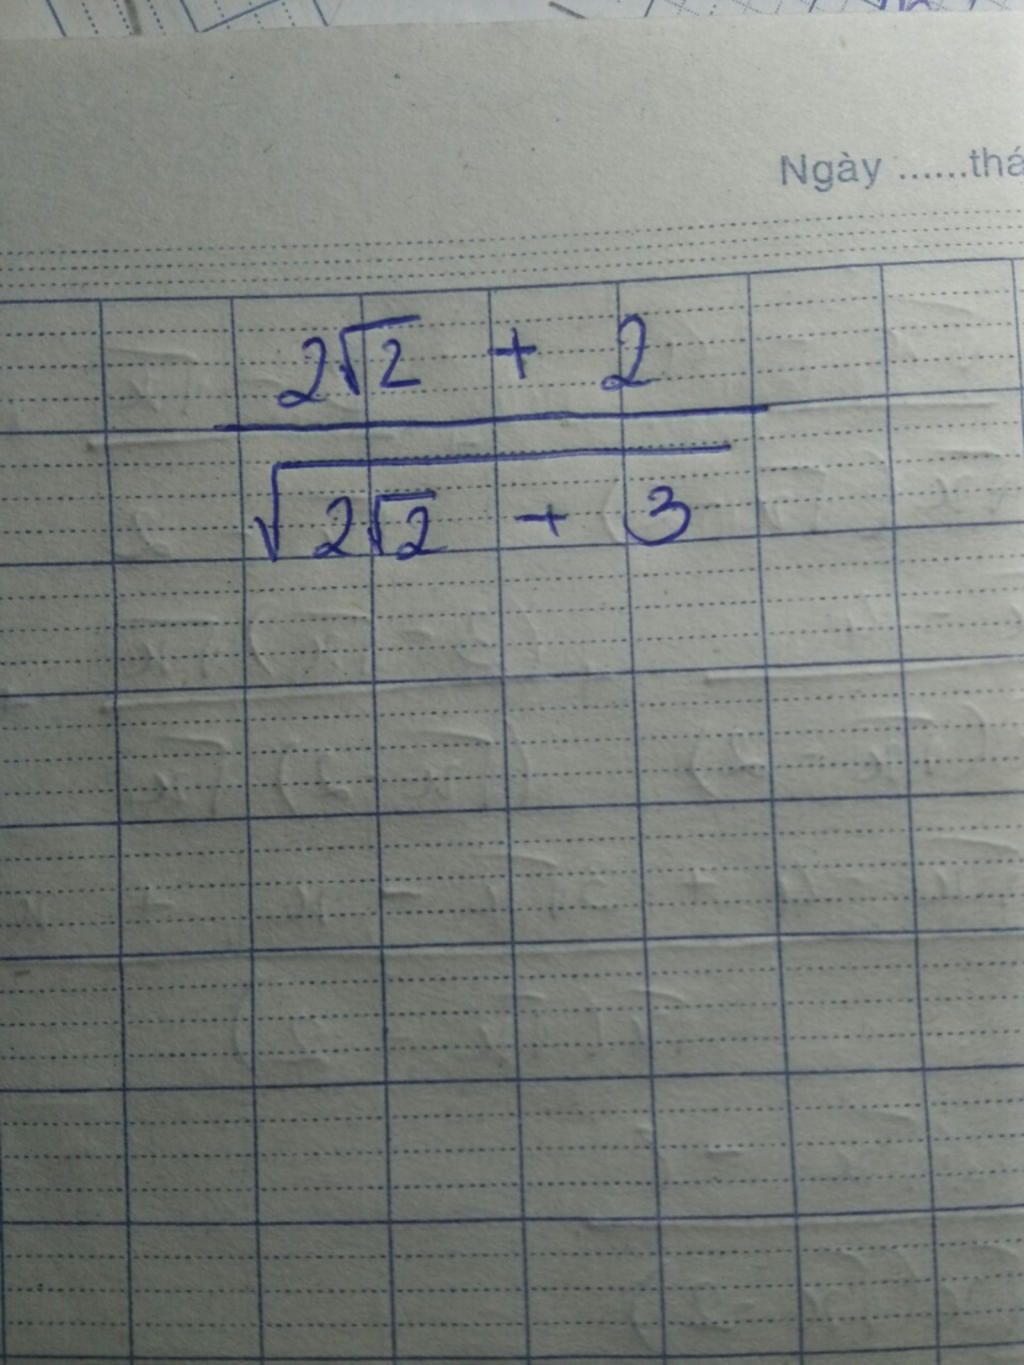 Ngày ......thá
2√2 + 2
√(2√2 + 3)